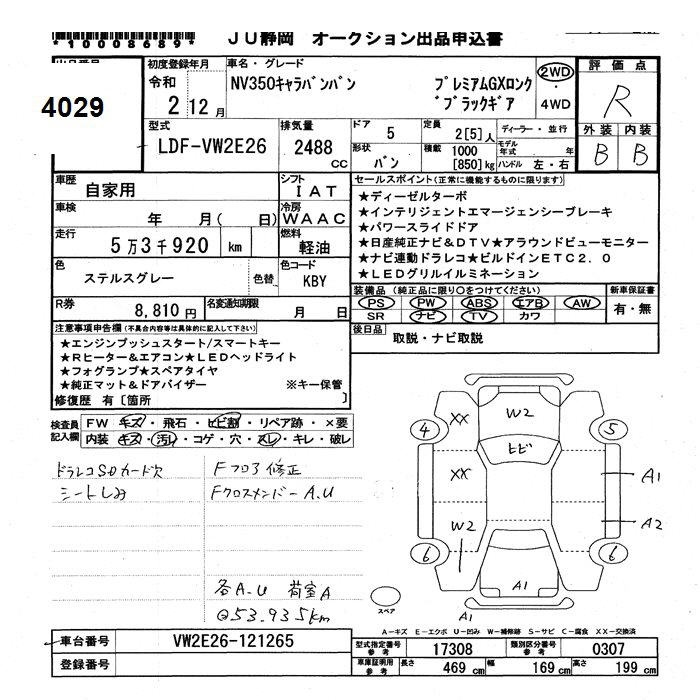 *10008689*
JU静岡 オークション出品申込書
4029
初度登録年月
令和
2 12月
車名・グレード
NV350キャラバンバン プレミアムGXロング
ブラックギア
2WD
・
4WD
評価点
R
外装 内装
B B
型式
LDF-VW2E26
排気量
2488
CC
ドア
5
定員
2[5]人
ディーラー・並行
形状
バン
積載
1000
[850]kg
モデル年式 年
ハンドル 左・右
車歴
自家用
シフト
IAT
車検
年 月( 日)
冷房
WAAC
走行
5万3千920 km
燃料
軽油
色
ステルスグレー
色替
色コード
KBY
R券
8,810円
名変通知期限
月 日
セールスポイント(正常に機能するものに限ります)
★ディーゼルターボ
★インテリジェントエマージェンシーブレーキ
★パワースライドドア
★日産純正ナビ&DTV★アラウンドビューモニター
★ナビ連動ドラレコ★ビルドインETC2.0
★LEDグリルイルミネーション
装備品 (純正品に限り○をつけてください)
PS PW ABS エアB AW
SR ナビ TV カワ
新車保証書
有・無
後日品
取説・ナビ取説
注意事項申告欄(不具合内容等は具体的に記入して下さい)
★エンジンプッシュスタート/スマートキー
★Rヒーター&エアコン★LEDヘッドライト
★フォグランプ★スペアタイヤ
★純正マット&ドアバイザー ※キー保管
修復歴 有[箇所 ]
検査員
記入欄
FW キズ・飛石・ヒビ割・リペア跡・×要
内装 キズ・汚レ・コゲ・穴・スレ・キレ・破レ
ドラレコSDカード欠
シートしみ
Fフロア修正
FクロスメンバーA.U
各A.U 荷室A
@53.935km
4
XX
W2
5
ヒビ
XX
A1
W2
A2
6
6
A1
A1
スペア
A-キズ E-エクボ U-凹み W-補修跡 S-サビ C-腐食 XX-交換済
車台番号
VW2E26-121265
登録番号
型式指定番号
参考
17308
類別区分番号
参考
0307
車庫証明用
参考
長さ 469 cm 幅 169 cm 高さ 199 cm